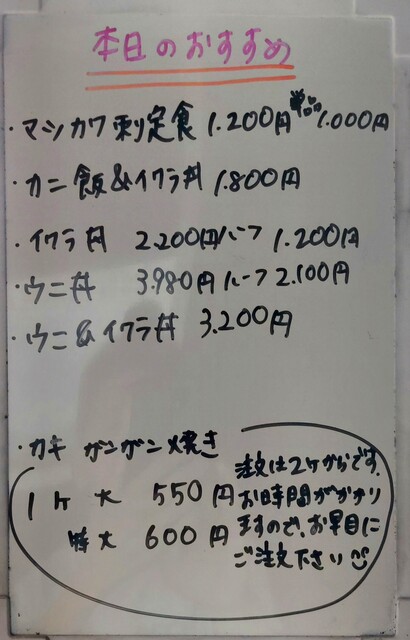 本日のおすすめ
・マシカワ刺定食 1.200円 単品 1.000円
・カニ飯&イクラ丼 1.800円
・イクラ丼 2.200円 ハーフ 1.200円
・ウニ丼 3.980円 ハーフ 2.100円
・ウニ&イクラ丼 3.200円
・カキ ガンガン焼き
1ヶ 大 550円
特大 600円
注文は2ヶからです。
お時間がかかり
ますので、お早目に
ご注文下さい